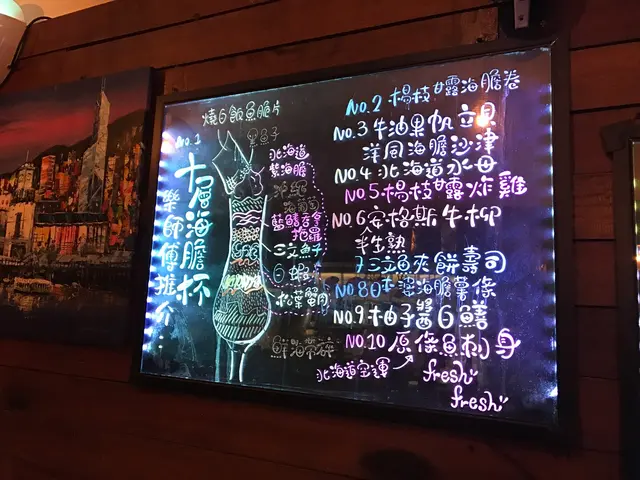 燒白飯魚脆片
No.1
十層海膽杯
樂師傅推介:
黑魚子
北海道
紫海膽
海葡萄
三文魚子
白蝦
松葉蟹肉
No.2 楊枝甘露海膽卷
No.3 牛油果帆立貝
海膽沙津
No.4 北海道水母
No.5 楊枝甘露炸雞
No.6 安格斯牛柳
半生熟
7 三文魚夾餅壽司
No.8 日本深海膽薯條
No.9 柚子醬白鱔
No.10 原條魚刺身
北海道空運
fresh
fresh